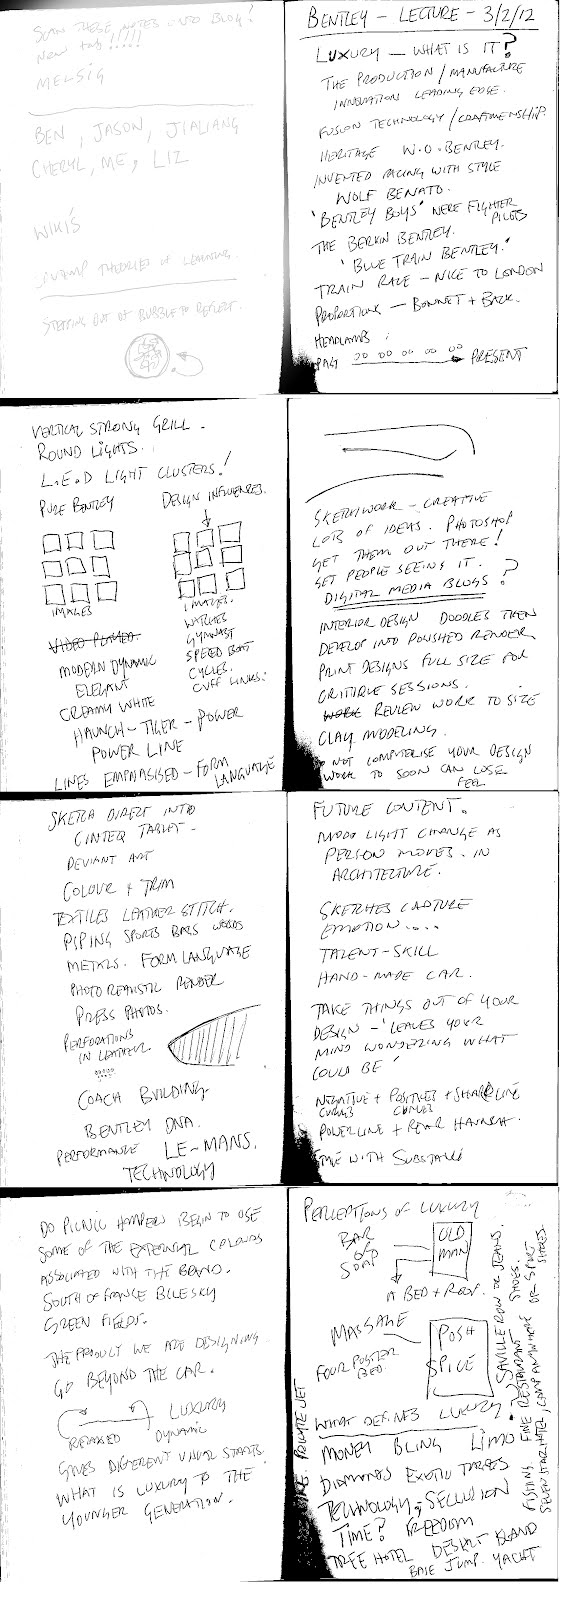 SCAN THESE NOTES INTO BLOG!
NEW TAB!!!!!
MELSIG
BEN, JASON, JIALIANG
CHERYL, ME, LIZ
WIKI'S
THEORIES OF LEARNING.
STEPPING OUT OF BUBBLE TO REFLECT.
BENTLEY - LECTURE - 3/2/12
LUXURY - WHAT IS IT?
THE PRODUCTION / MANUFACTURE
INNOVATION LEADING EDGE.
FUSION TECHNOLOGY / CRAFTMENSHIP.
HERITAGE W.O. BENTLEY.
INVENTED RACING WITH STYLE
WOLF BENATO.
'BENTLEY BOYS' WERE FIGHTER
PILOTS
THE BERKIN BENTLEY.
'BLUE TRAIN BENTLEY.'
TRAIN RACE - NICE TO LONDON
PROPORTIONS - BONNET + BACK.
HEADLAMPS
PAST PRESENT
VERTICAL STRONG GRILL.
ROUND LIGHTS.
L.E.D LIGHT CLUSTERS!
PURE BENTLEY
DESIGN INFLUENCES.
IMAGES
IMAGES.
WATCHES
GYMNAST
SPEED BOAT
CYCLES.
CUFF LINKS.
VIDEO PLAYED
MODERN DYNAMIC
ELEGANT
CREAMY WHITE
HAUNCH - TIGER - POWER
POWER LINE
LINES EMPHASISED - FORM
LANGUAGE
SKETCHWORK - CREATIVE
LOTS OF IDEAS. PHOTOSHOP
GET THEM OUT THERE!
GET PEOPLE SEEING IT.
DIGITAL MEDIA BLOGS?
INTERIOR DESIGN DOODLES THEN
DEVELOP INTO POLISHED RENDER
PRINT DESIGNS FULL SIZE FOR
CRITIQUE SESSIONS.
WORK REVIEW WORK TO SIZE
CLAY MODELING.
DO NOT COMPUTERISE YOUR DESIGN
WORK TO SOON CAN LOSE
FEEL
SKETCH DIRECT INTO
CINTEQ TABLET.
DEVIANT ART
COLOUR + TRIM
TEXTILES LEATHER STITCH.
PIPING SPORTS BAGS WOODS
METALS. FORM LANGUAGE
PHOTO REALISTIC RENDER
PRESS PHOTOS.
PERFORATIONS
IN LEATHER.
COACH BUILDING
BENTLEY DNA.
PERFORMANCE LE-MANS.
TECHNOLOGY
FUTURE CONTENT.
MOOD LIGHT CHANGE AS
PERSON MOVES. IN
ARCHITECTURE.
SKETCHES CAPTURE
EMOTION....
TALENT - SKILL
HAND-MADE CAR.
TAKE THINGS OUT OF YOUR
DESIGN - 'LEAVES YOUR
MIND WONDERING WHAT
COULD BE'
NEGATIVE + POSITIVES + SHARP LINE
CURVES CURVES
POWERLINE + REAR HAUNCH.
STYLE WITH SUBSTANCE
DO PICNIC HAMPERS BEGIN TO USE
SOME OF THE EXTERNAL COLOURS
ASSOCIATED WITH THE BRAND.
SOUTH OF FRANCE BLUE SKY
GREEN FIELDS.
THE PRODUCT WE ARE DESIGNING
GO BEYOND THE CAR.
LUXURY
RELAXED DYNAMIC
GIVES DIFFERENT VISUAL STARTS
WHAT IS LUXURY TO THE
YOUNGER GENERATION.
PERCEPTIONS OF LUXURY
BAR
OF
SOAP
OLD
MAN
A BED + ROOF.
MASSAGE
FOUR POSTER
BED.
POSH
SPICE
WHAT DEFINES LUXURY
MONEY BLING LIMO
DIAMONDS EXOTIC
TECHNOLOGY, SECLUSION
TIME? FREEDOM
TREE HOTEL DESERT ISLAND
BASE JUMP. YACHT
PRIVATE JET
SAVILLE ROW OR JEANS.
FINE RESTAURANT SHOES.
FISHING
SEVEN STAR HOTEL, CAMP ANYWHERE OR SPORT
SHOES.